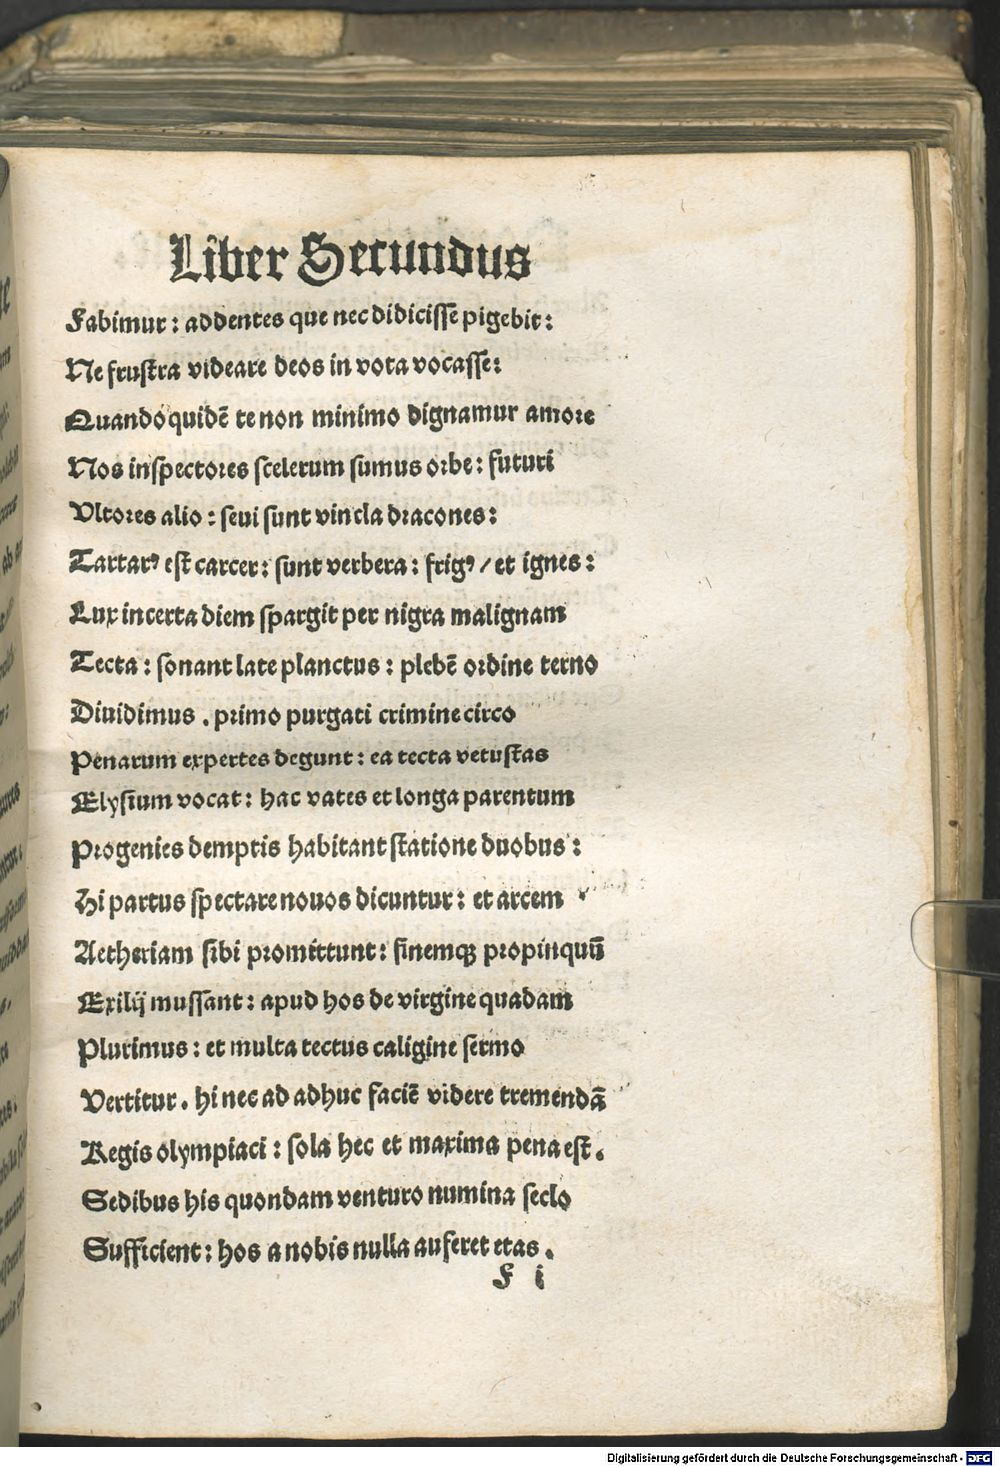 Liber Secundus
Fabimur: addentes que nec didicisse pigebit:
Ne frustra videare deos in vota vocasse:
Quandoquidē te non minimo dignamur amore
Nos inspectores scelerum sumus orbe: futuri
Vltores alio: seui sunt vincla dracones:
Tartarꝰ est carcer: sunt verbera: frigꝰ / et ignes:
Lux incerta diem spargit per nigra malignam
Tecta: sonant late planctus: plebē ordine terno
Diuidimus. primo purgati crimine circo
Penarum expertes degunt: ea tecta vetustas
Elysium vocat: hac vates et longa parentum
Progenies demptis habitant statione duobus:
Hi partus spectare nouos dicuntur: et arcem
Aetheriam sibi promittunt: finemqꝫ propinquū
Exilij mussant: apud hos de virgine quadam
Plurimus: et multa tectus caligine sermo
Vertitur. hi nec ad adhuc faciē videre tremendā
Regis olympiaci: sola hec et maxima pena est.
Sedibus his quondam venturo numina seclo
Sufficient: hos a nobis nulla auferet etas.
F i
Digitalisierung gefördert durch die Deutsche Forschungsgemeinschaft - DFG